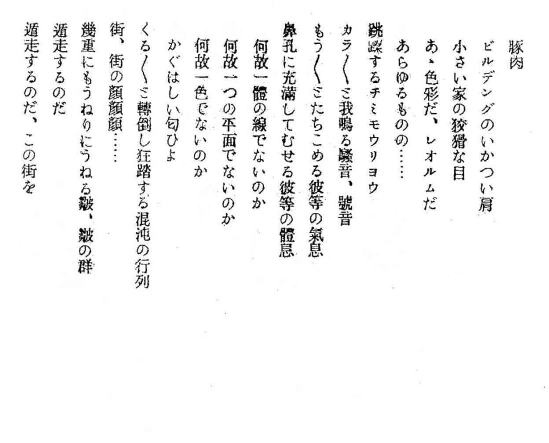 豚肉
ビルデングのいかつい肩
小さい家の狡猾な目
あゝ色彩だ、レオルムだ
あらゆるものの……
するチミモウリヨウ
カラ〳〵と我鳴る騷音、號音
もう〳〵とたちこめる彼等の氣息
鼻孔に充滿してむせる彼等の體息
何故一體の線でないのか
何故一つの平面でないのか
何故一色でないのか
かぐはしい匂ひよ
くる〳〵と轉倒し狂踏する混沌の行列
街、街の顏顏顏……
幾重にもうねりにうねる皺、皺の群
遁走するのだ
遁走するのだ、この街を